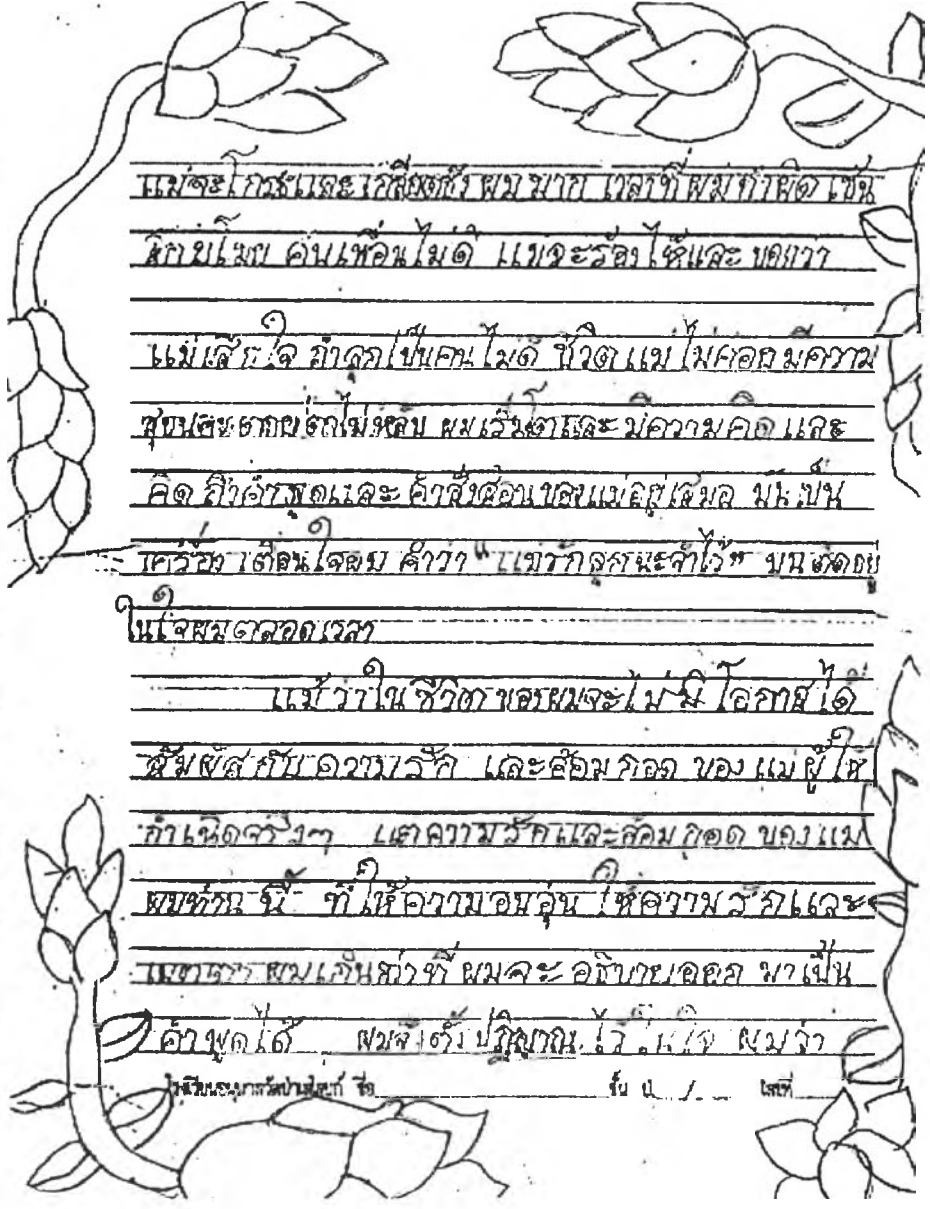 แม่จะโกรธและเกลียดชังผมมาก เวลาที่ผมทำผิด เช่น
ลักขโมย คบเพื่อนไม่ดี แม่จะร้องไห้และ บอกว่า
แม่เสียใจ ถ้าลูกเป็นคนไม่ดี ชีวิตแม่ไม่ค่อยมีความ
สุขนอนตายตาไม่หลับ ผมเริ่มโตและ มีความคิด และ
คิด ถึงคำพูดและ คำสั่งสอนของแม่อยู่เสมอ มันเป็น
เครื่อง เตือนใจผม คำว่า "แม่รักลูกนะจำไว้" มันติดอยู่
ในใจผมตลอดเวลา
แม้ว่าใน ชีวิตของผมจะไม่ มี โอกาส ได้
สัมผัส กับ ความรัก และอ้อม กอด ของ แม่ ผู้ ให้
กำเนิดจริงๆ แต่ความรักและอ้อม กอด ของ แม่
ผมท่าน นี้ ที่ ให้ ความอบอุ่น ให้ความรักและ
เมตตา ผมเกินกว่าที่ ผมจะ อธิบายออก มาเป็น
คำพูดได้ ผมจึงตั้ง ปริญาณ ไว้ ในใจ ผมว่า
โรงเรียนอนุบาลวัดป่าเลไลยก์ ชื่อ ชั้น ป. / เลขที่